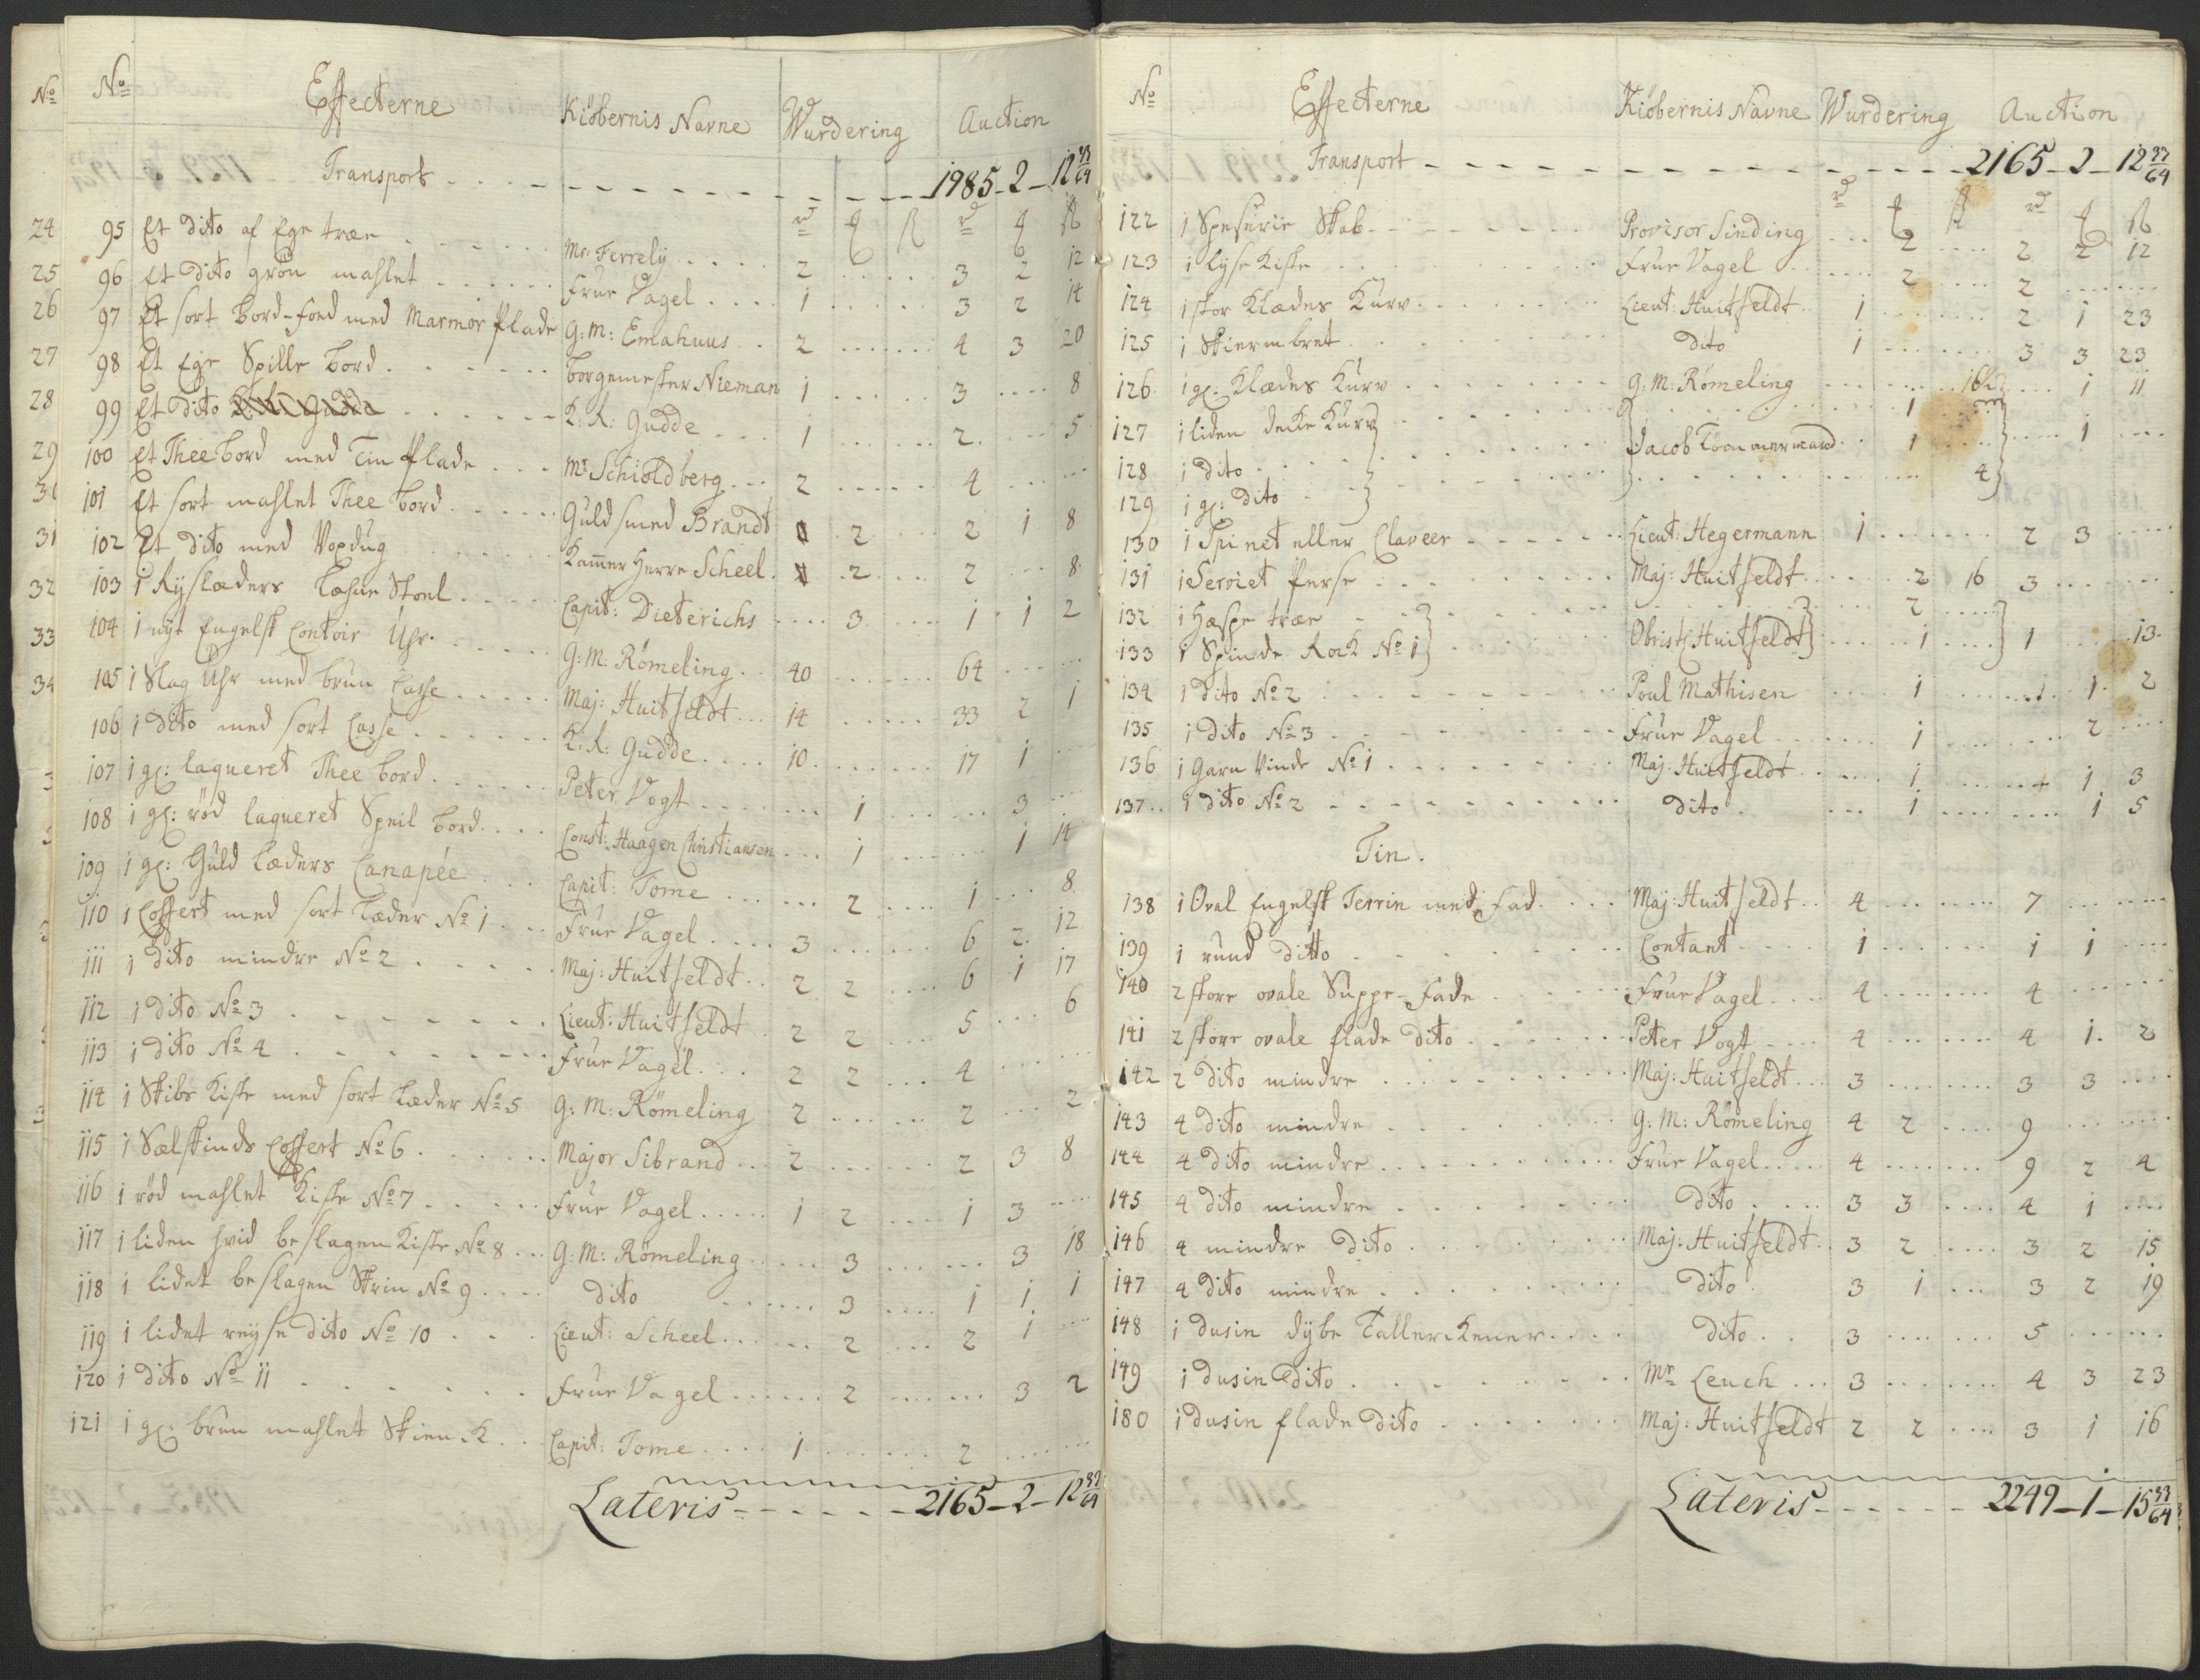 No Effecterne Kiöbernis Navne Wurdering Auction
Transport 1985-2-12 33/64
95 Et dito af Ege træe Mr: Ferrely 2 3 2 12
96 Et dito grön mahlet Frue Vagel 1 3 2 14
97 Et sort bord-foed med Marmor Plade G: M: Emahuus 2 4 3 20
98 Et Ege Spille bord borgemester Nieman 1 3 8
99 Et dito K: R: Gudde 1 2 5
100 Et Thee bord med Tin Plade Mr Schioldberg 2 4
101 Et sort mahlet Thee bord Guldsmed Brandt 2 2 1 8
102 Et dito med Voxdug Kammer Herre Scheel 2 2 8
103 1 Ryslæders Læhne Stoel Capit: Dieterichs 3 1 1 2
104 1 nyt Engelsk Contoir Uhr G: M: Römeling 40 64
105 1 Slag Uhr med brun Casse Maj: Huitfeldt 14 33 2 1
106 1 dito med sort Casse K: R: Gudde 10 17 1
107 1 gl: laqueret Thee bord Peter Vogt 1 3
108 1 gl: röd laqueret Speil bord Const: Haagen Christiansen 1 1 14
109 1 gl: Guld Læders Canapée Capit: Tome 2 1 8
110 1 Coffert med sort Læder No 1 Frue Vagel 3 6 2 12
111 1 dito mindre No 2 Maj: Huitfeldt 2 2 6 1 17
112 1 dito No 3 Lieut: Huitfeldt 2 2 5 6
113 1 dito No 4 Frue Vagel 2 2 4
114 1 Skibs Kiste med sort Læder No 5 G: M: Römeling 2 2 2
115 1 Sælskinds Coffert No 6 Major Sibrand 2 2 3 8
116 1 röd mahlet Kiste No 7 Frue Vagel 1 2 1 3
117 1 liden hvid beslagen Kiste No 8 G: M: Römeling 3 3 18
118 1 lidet beslagen Skrin No 9 dito 3 1 1 1
119 1 lidet reyse dito No 10 Lieut: Scheel 2 2 1
120 1 dito No 11 Frue Vagel 2 3 2
121 1 gl: brun mahlet Skienk Capit: Tome 1 2
Lateris 2165-2-12 33/64
No Effecterne Kiöbernis Navne Wurdering Auction
Transport 2165-2-12 33/64
122 1 Speserie Skab Provisor Sinding 2 2 2 12
123 1 lyse Kiste Frue Vagel 2 2
124 1 stor Klædes Kurv Lieut: Huitfeldt 1 2 1 23
125 1 Skiermbret dito 1 3 3 23
126 1 gl: Klædes Kurv G: M: Römeling 16 1 11
127 1 liden decke Kurv 1
128 1 dito Jacob Tömmermand 1 1
129 1 gl: dito 4
130 1 Spinet eller Claveer Lieut: Hegermann 1 2 3
131 1 Serviet Perse Maj: Huitfeldt 2 16 3
132 1 Haspe træe 2
133 1 Spinde Rock No 1 Obristl Huitfeldt 1 1 13
134 1 dito No 2 Poul Mathisen 1 1 1 2
135 1 dito No 3 Frue Vagel 1 2
136 1 Garn Vinde No 1 Maj: Huitfeldt 1 1 3
137 1 dito No 2 dito 1 1 5
Tin.
138 1 Oval Engelsk Terrin med Fad Maj: Huitfeldt 4 7
139 1 rund ditto Contant 1 1 1
140 2 store ovale Suppe-Fade Frue Vagel 4 4
141 2 store ovale flade dito Peter Vogt 4 4 1 2
142 2 dito mindre Maj: Huitfeldt 3 3 3
143 4 dito mindre G: M: Römeling 4 2 9
144 4 dito mindre Frue Vagel 4 9 2 4
145 4 dito mindre dito 3 3 4 1
146 4 mindre dito Maj: Huitfeldt 3 2 3 2 15
147 4 dito mindre dito 3 1 3 2 19
148 1 dusin dybe Tallerkener dito 3 5
149 1 dusin dito Mr Leuch 3 4 3 23
180 1 dusin flade dito Maj: Huitfeldt 2 2 3 1 16
Lateris 2249-1-15 33/64